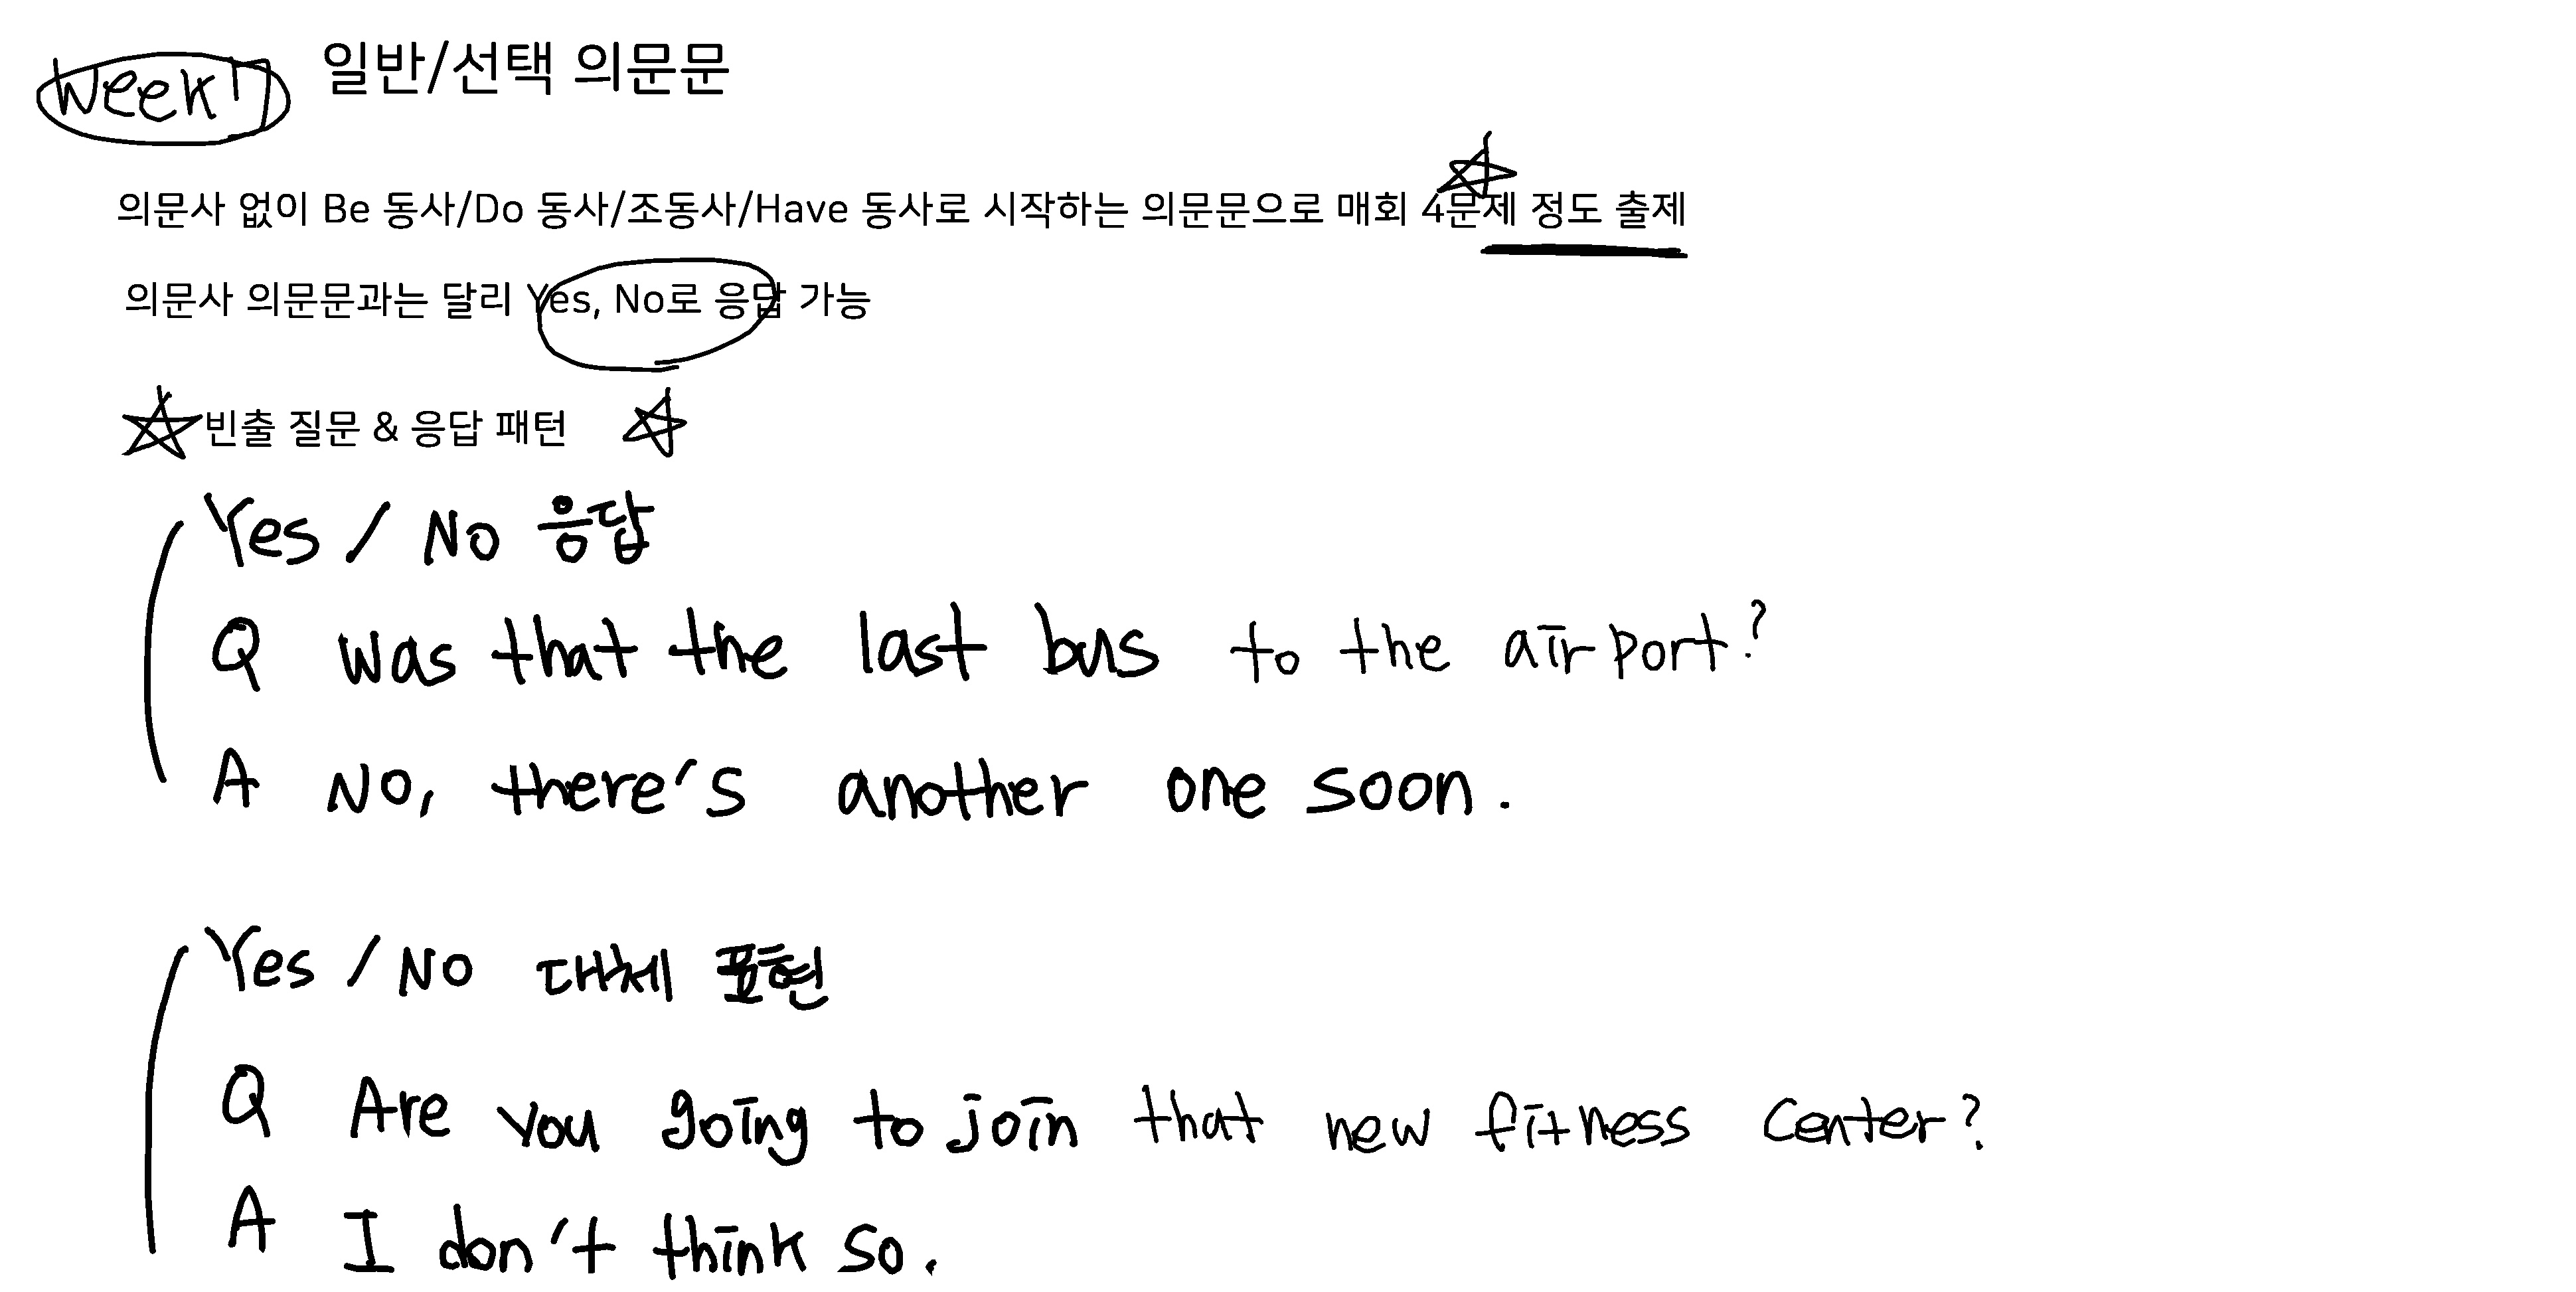 Week 17 일반/선택 의문문
의문사 없이 Be 동사/Do 동사/조동사/Have 동사로 시작하는 의문문으로 매회 4문제 정도 출제
의문사 의문문과는 달리 Yes, No로 응답 가능
빈출 질문 & 응답 패턴
Yes / No 응답
Q was that the last bus to the airport?
A No, there's another one soon.
Yes / No 대체 표현
Q Are you going to join that new fitness center?
A I don't think so.